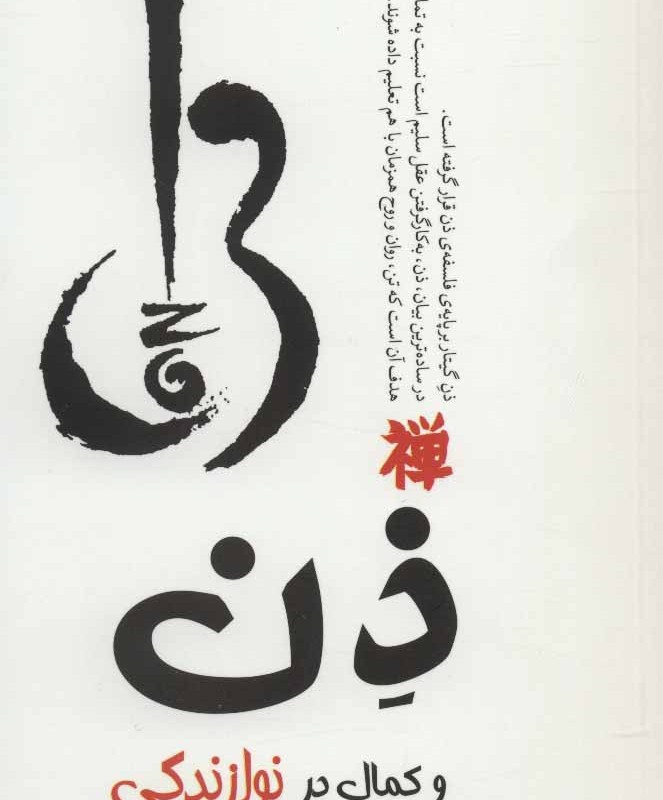 ذنِ گیتار بر پایه‌ی فلسفه‌ی ذن قرار گرفته است.
در ساده‌ترین بیان، ذن، به‌کارگرفتن عقل سلیم است نسبت به
هدف آن است که تن، روان و روح همزمان با هم تعلیم داده شوند
禅
ذِن
و کمال در نوازندگی